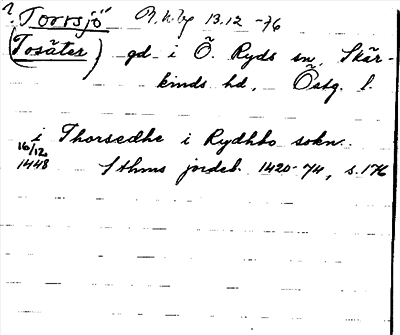 ? "Torrsjö" 13.12 -76
(Tosäter) gd i Ö. Ryds sn, Skär-
kinds hd, Östg. l.
i Thorsedhe i Rydhbo sokn.
16/12
1448 Sthms jordeb. 1420-74, s. 176